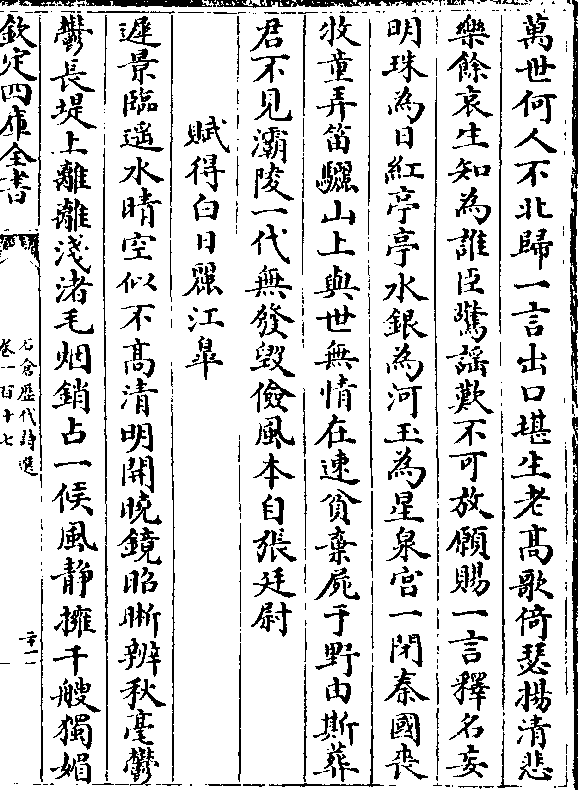 萬世何人不北歸一言出口堪生老髙歌倚瑟揚清悲
樂餘哀生知為誰臣驚謡歎不可放願賜一言釋名妄
明珠為日紅亭亭水銀為河玉為星泉宫一閉秦國喪
牧童弄笛驪山上與世無情在速貧棄屍于野由斯葬
君不見灞陵一代無發毀儉風本自張廷尉
賦得白日麗江臯
遲景臨遥水晴空似不髙清明開晩鏡昭晰辨秋毫鬱
鬱長堤上離離淺渚毛烟銷占一候風静擁千艘獨媚
欽定四庫全書
石倉歴代詩選
卷一百十七